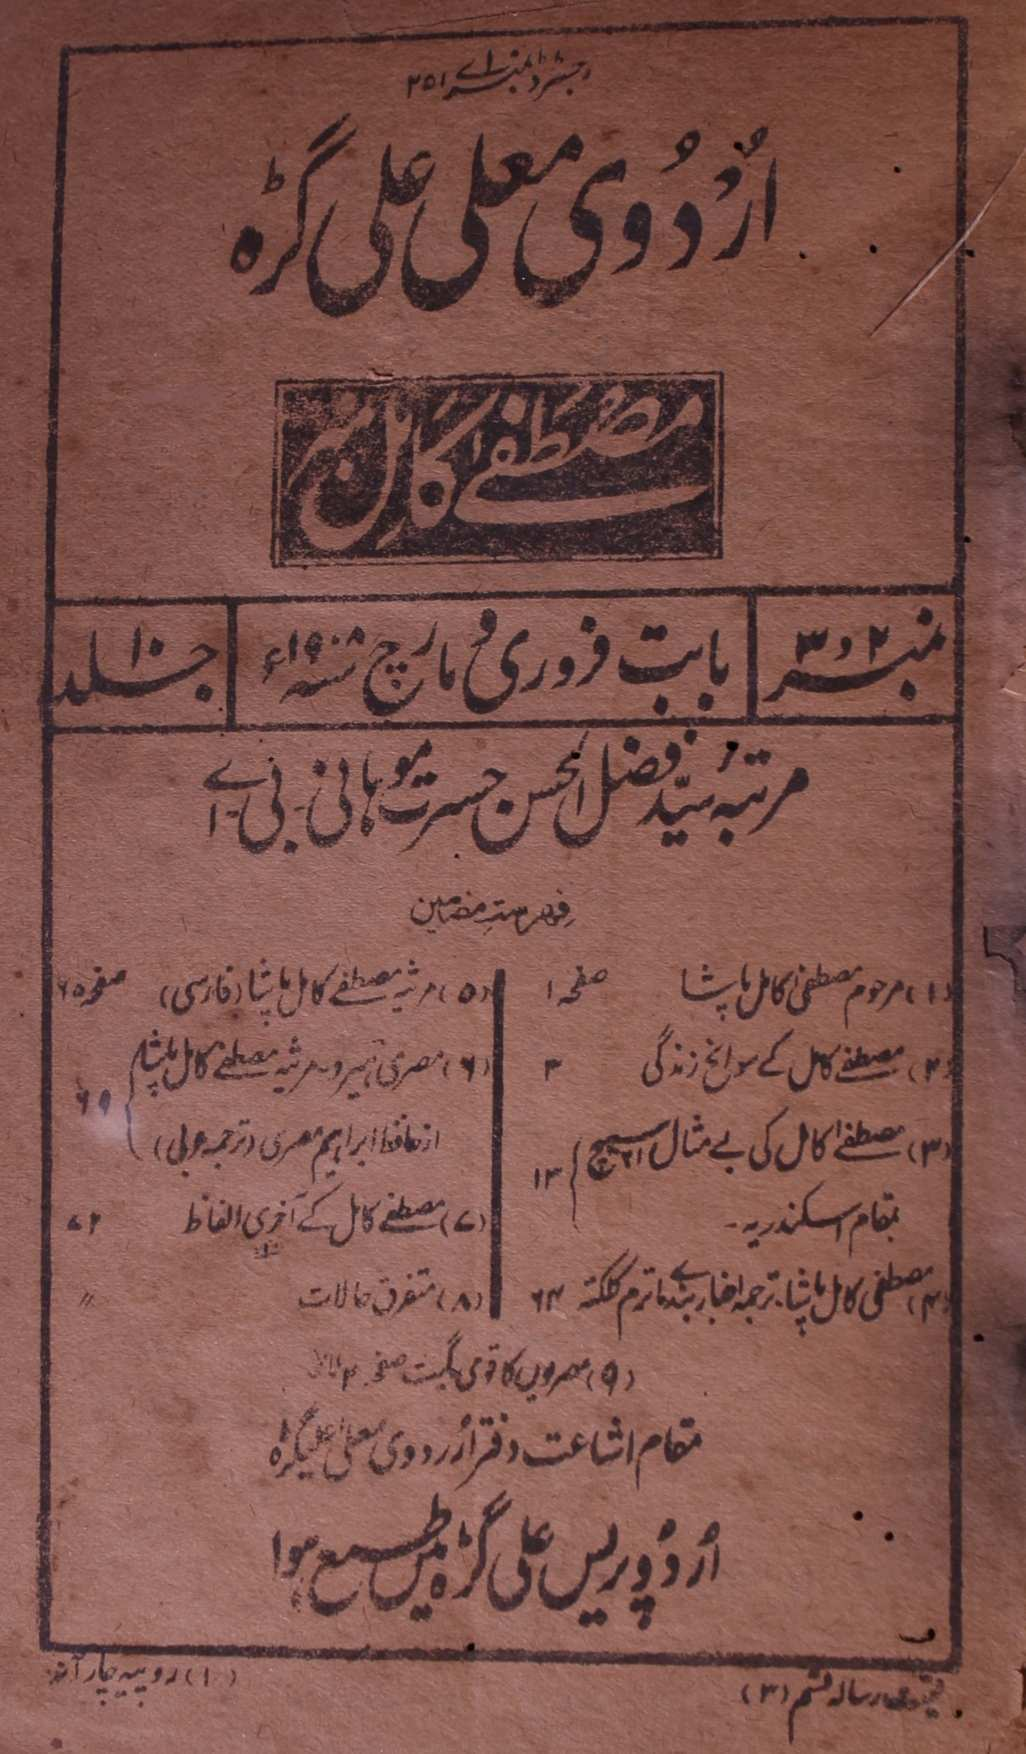 رجسٹرڈ نمبر اے ۲۵۱
اُرْدُوی معلی علی گڑہ
مصطفےٰ کامل نمبر
نمبر ۲ و ۳
بابت فروری و مارچ سنہ ۱۹۰۸ء
جلد ۱۰
مرتبہ سیّد فضل الحسن حسرت موہانی۔ بی۔ اے
فہرست مضامین
(۱) مرحوم مصطفیٰ کامل پاشا صفحہ ۱
(۲) مصطفےٰ کامل کے سوانح زندگی ۳
(۳) مصطفےٰ کامل کی بے مثال اسپیچ
بمقام اسکندریہ۔ ۱۳
(۴) مصطفی کامل پاشا۔ ترجمہ اخبار بندے ماترم کلکتہ ۶۴
(۵) مرثیہ مصطفےٰ کامل پاشا (فارسی) صفحہ ۶۵
(۶) مصری ہیرو۔ مرثیہ مصطفےٰ کامل پاشا
از حافظ ابراہیم مصری (ترجمہ عربی) ۶۹
(۷) مصطفےٰ کامل کے آخری الفاظ ۷۲
(۸) متفرق حالات 〃
(۹) مصریوں کا قومی گیت صفحہ
مقام اشاعت دفتر اُردوی معلی علیگڑہ
اُردُو پریس علی گڑہ میں طبع ہوا
رسالہ قسم (۳)
(۱) روپیہ چار آنہ